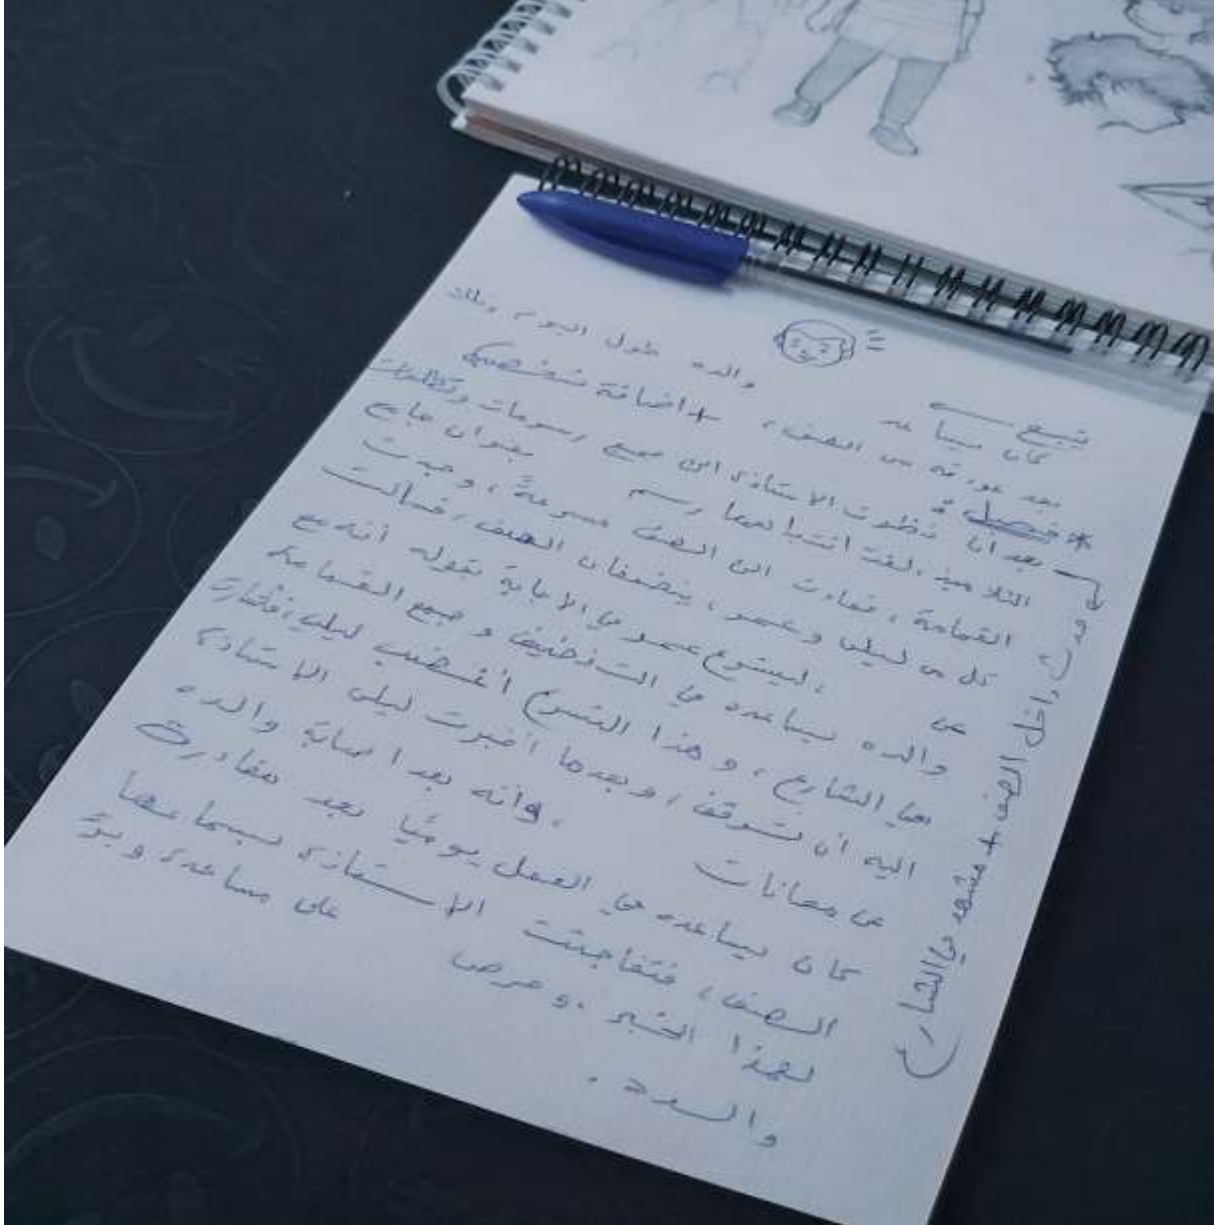 تبع
كان يساعد والده طول اليوم وذلك
بعد عودته من الصف، + اضافة شخصية
* فصل:
بعد ان نظرت الاستاذة الى جميع رسومات
التلاميذ، لفت انتباهها رسم بعنوان جامع
القمامة، فعادت الى الصف مسرعةً، وجدت
كل من ليلى وعمر، ينضفان الصف، فسألت
عن ، ليسرع عمر في الاجابة بقوله أنه مع
والده يساعده في التنضيف و جمع القمامة
في الشارع، وهذا الشيئ أغضب ليلى، فأشارت
اليه أن يتوقف، وبعدها أخبرت ليلى الاستاذة
عن معانات ، وانه بعد اصابة والده
كان يساعده في العمل يوميًا بعد مغادرت
الصف، فتفاجئت الاستاذة بسماعها
لهذا الخبر. وحرص على مساعدة وبرّ
والده.
حدث داخل الصف + مشهد في الشارع